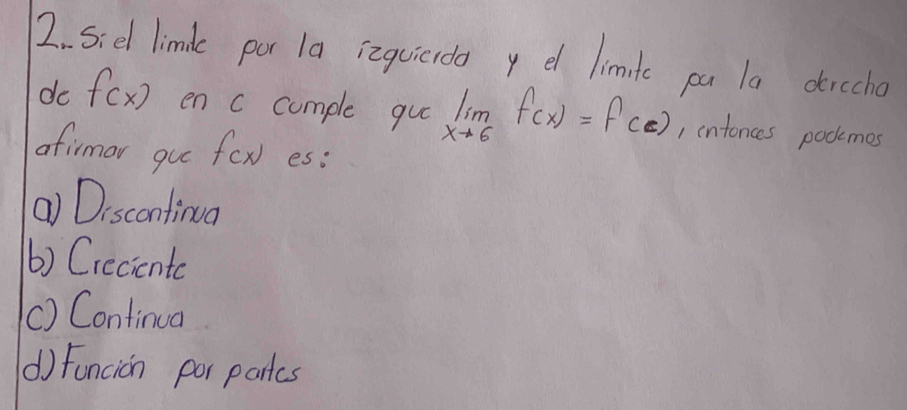 2.. Si el limite por la izquierda y el limite por la derecha
de f(x) en c cumple que lim f(x) = f(c), entonces podemos
x→6
afirmar que f(x) es:
a) Discontinua
b) Creciente
c) Continua
d) Función por partes